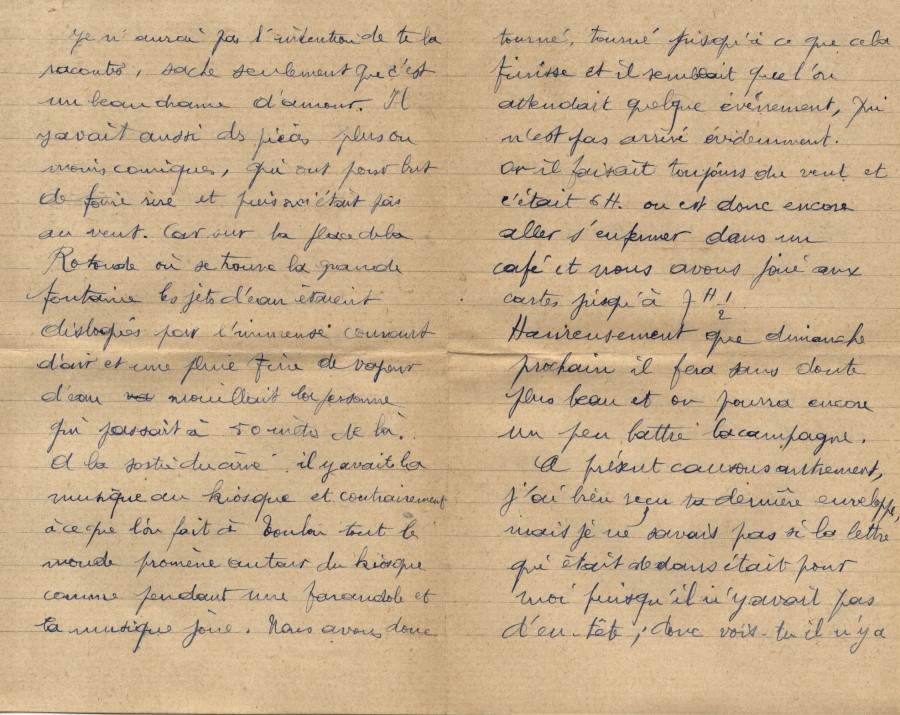 Je n'aurai pas l'intention de te la
raconter, sache seulement que c'est
un beau drame d'amour. Il
y avait aussi des pièces plus ou
moins comiques, qui ont pour but
de faire rire et puis on était pas
au vent. Car sur la place de la
Rotonde où se trouve la grande
fontaine les jets d'eau étaient
disloqués par l'immense courant
d'air et une pluie fine de vapeur
d'eau mouillait la personne
qui passait à 50 mètres de là.
A la sortie du ciné il y avait la
musique au kiosque et contrairement
à ce que l'on fait à Toulon tout le
monde promène autour du kiosque
comme pendant une farandole et
la musique joue. Nous avons donc
tourné, tourné jusqu'à ce que cela
finisse et il semblait que l'on
attendait quelque événement, qui
n'est pas arrivé évidemment.
or il faisait toujours du vent et
c'était 6H. on est donc encore
aller s'enfermer dans un
café et nous avons joué aux
cartes jusqu'à 7 H 1/2
Heureusement que dimanche
prochain il fera sans doute
plus beau et on pourra encore
un peu battre la campagne.
A présent causons autrement,
j'ai bien reçu ta dernière enveloppe,
mais je ne savais pas si la lettre
qui était dedans était pour
moi puisqu'il n'y avait pas
d'en-tête ; donc vois-tu il n'y a